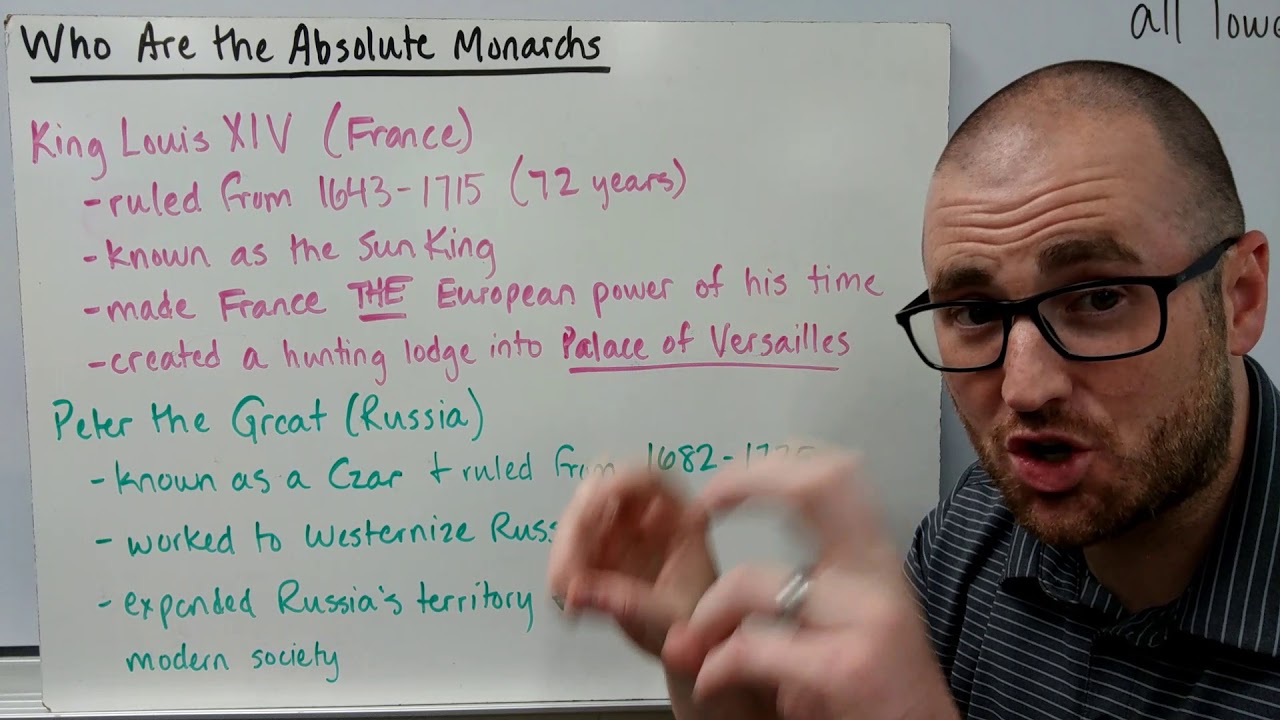 all
Who Are the Absolute Monarchs
King Louis XIV (France)
-ruled from 1643-1715 (72 years)
-known as the Sun King
-made France THE European power of his time
-created a hunting lodge into Palace of Versailles
Peter the Great (Russia)
-known as a Czar + ruled from 1682-
- worked to Westernize
- expanded Russia's territory
modern society